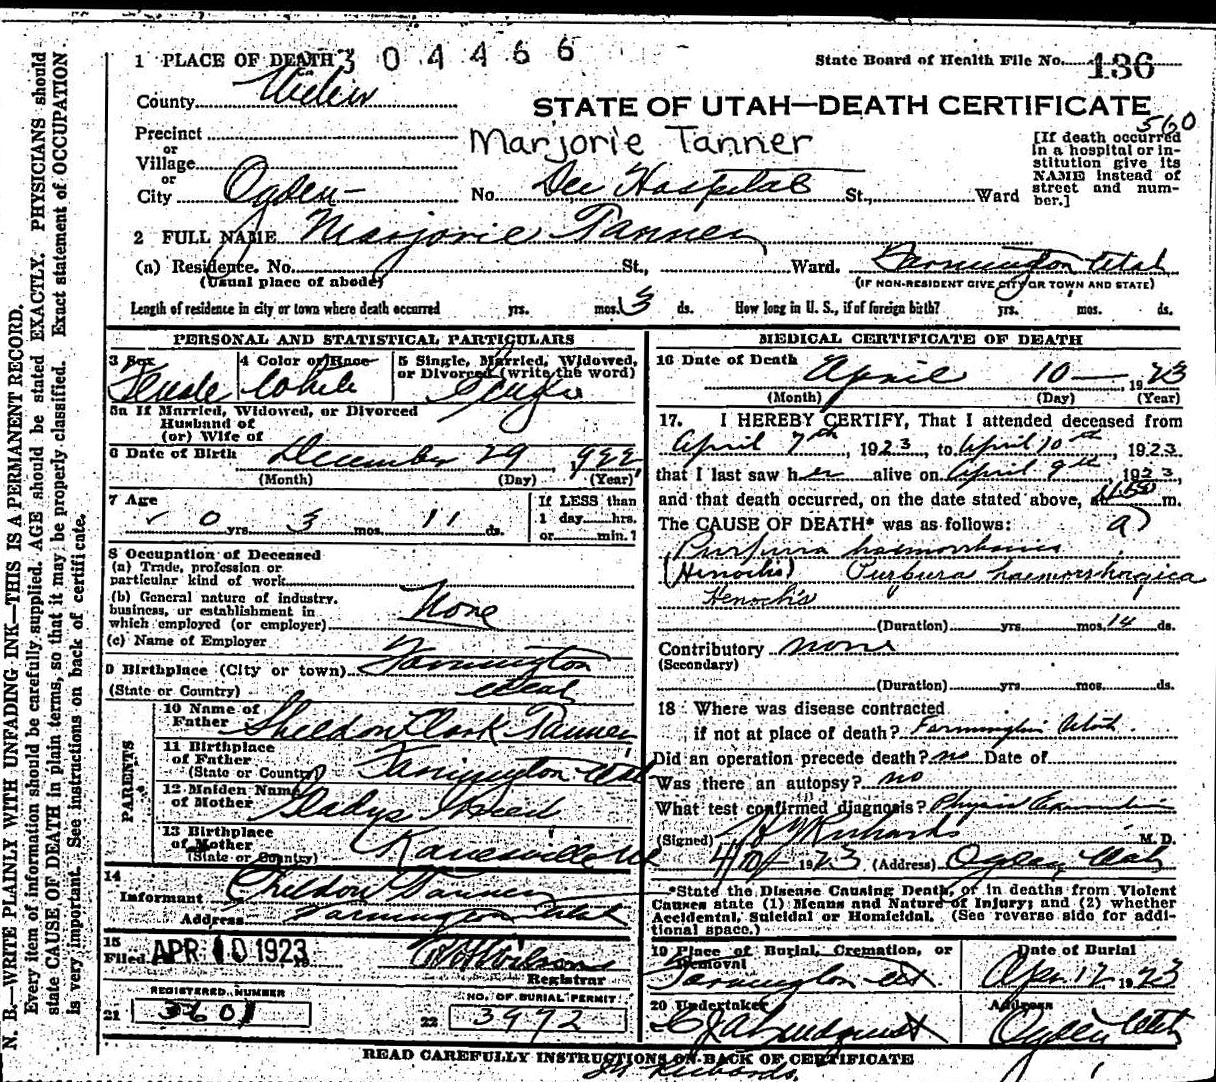 1 PLACE OF DEATH 304466
State Board of Health File No. 136
County Weber
STATE OF UTAH—DEATH CERTIFICATE
560
Precinct
or
Village
or
City Ogden
Marjorie Tanner
No. Dee Hospital St., Ward
[If death occurred
in a hospital or in-
stitution give its
NAME instead of
street and num-
ber.]
2 FULL NAME Marjorie Tanner
(a) Residence. No. St., Ward. Farmington Utah
(Usual place of abode)
(IF NON-RESIDENT GIVE CITY OR TOWN AND STATE)
Length of residence in city or town where death occurred yrs. mos. 3 ds. How long in U. S., if of foreign birth? yrs. mos. ds.
PERSONAL AND STATISTICAL PARTICULARS
3 Sex Female
4 Color or Race White
5 Single, Married, Widowed,
or Divorced (write the word)
Single
5a If Married, Widowed, or Divorced
Husband of
(or) Wife of
6 Date of Birth December 29, 1922
(Month) (Day) (Year)
7 Age
0 yrs. 3 mos. 11 ds.
If LESS than
1 day......hrs.
or......min.?
8 Occupation of Deceased
(a) Trade, profession or
particular kind of work
(b) General nature of industry,
business, or establishment in
which employed (or employer) None
(c) Name of Employer
9 Birthplace (City or town) Farmington
(State or Country) Utah
PARENTS
10 Name of
Father Sheldon Clark Tanner
11 Birthplace
of Father
(State or Country) Farmington Utah
12 Maiden Name
of Mother Gladys
13 Birthplace
of Mother
(State or Country) Kanesville Ut
14
Informant Sheldon Tanner
Address Farmington Utah
15
Filed APR 10 1923, 19
Wilson
Registrar
REGISTERED NUMBER
21 3601
NO. OF BURIAL PERMIT
22 3972
MEDICAL CERTIFICATE OF DEATH
16 Date of Death April 10 1923
(Month) (Day) (Year)
17. I HEREBY CERTIFY, That I attended deceased from
April 7th, 1923, to April 10th, 1923
that I last saw her alive on April 9th, 1923,
and that death occurred, on the date stated above, at 11:50 m.
The CAUSE OF DEATH* was as follows: a
Purpura haemorrhagica
(Henochs) Purpura haemorrhagica
Henoch's
(Duration) yrs. mos. 14 ds.
Contributory none
(Secondary)
(Duration) yrs. mos. ds.
18 Where was disease contracted
if not at place of death? Farmington Utah.
Did an operation precede death? no Date of
Was there an autopsy? no
What test confirmed diagnosis? Physic Examination
(Signed) Richards M.D.
4/10/ 1923 (Address) Ogden Utah
*State the Disease Causing Death, or in deaths from Violent
Causes state (1) Means and Nature of Injury; and (2) whether
Accidental, Suicidal or Homicidal. (See reverse side for addi-
tional space.)
19 Place of Burial, Cremation, or
Removal
Farmington Ut
Date of Burial
Apr 12 1923
20 Undertaker
Lindquist
Address
Ogden Utah
READ CAREFULLY INSTRUCTIONS ON BACK OF CERTIFICATE
Richards.
N. B.—WRITE PLAINLY WITH UNFADING INK—THIS IS A PERMANENT RECORD.
Every item of information should be carefully supplied. AGE should be stated EXACTLY. PHYSICIANS should
state CAUSE OF DEATH in plain terms, so that it may be properly classified. Exact statement of OCCUPATION
is very important. See instructions on back of certificate.